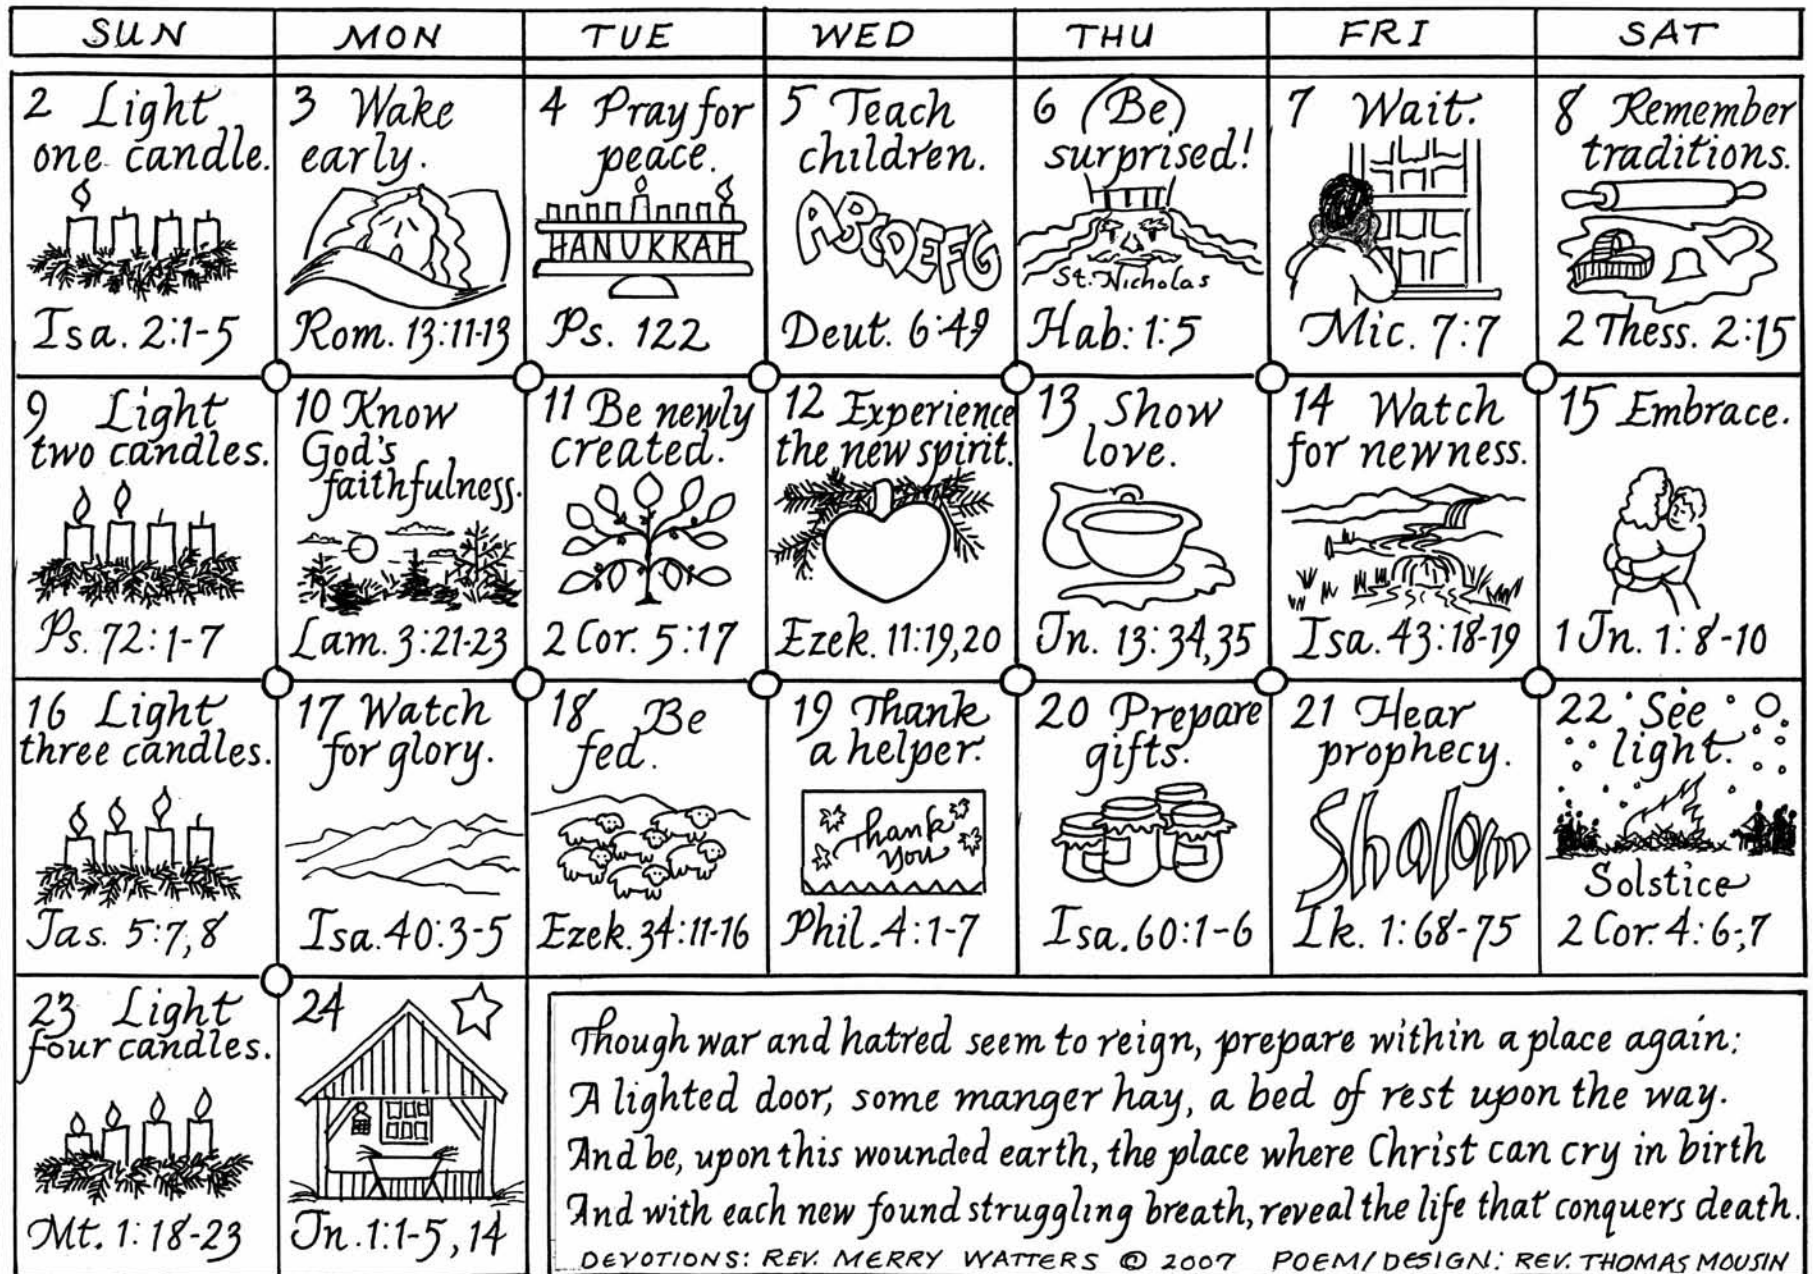 SUN MON TUE WED THU FRI SAT
2 Light
one candle.
Isa. 2:1-5
3 Wake
early.
Rom. 13:11-13
4 Pray for
peace.
HANUKKAH
Ps. 122
5 Teach
children.
ABCDEFG
Deut. 6:49
6 (Be)
surprised!
St. Nicholas
Hab: 1:5
7 Wait.
Mic. 7:7
8 Remember
traditions.
2 Thess. 2:15
9 Light
two candles.
Ps. 72:1-7
10 Know
God's
faithfulness.
Lam. 3:21-23
11 Be newly
created.
2 Cor. 5:17
12 Experience
the new spirit.
Ezek. 11:19,20
13 Show
love.
Jn. 13:34,35
14 Watch
for newness.
Isa. 43:18-19
15 Embrace.
1 Jn. 1:8-10
16 Light
three candles.
Jas. 5:7,8
17 Watch
for glory.
Isa. 40:3-5
18 Be
fed.
Ezek. 34:11-16
19 Thank
a helper.
Thank
you
Phil. 4:1-7
20 Prepare
gifts.
Isa. 60:1-6
21 Hear
prophecy.
Shalom
Lk. 1:68-75
22 See
light.
Solstice
2 Cor. 4:6-,7
23 Light
four candles.
Mt. 1:18-23
24
Jn. 1:1-5, 14
Though war and hatred seem to reign, prepare within a place again:
A lighted door, some manger hay, a bed of rest upon the way.
And be, upon this wounded earth, the place where Christ can cry in birth
And with each new found struggling breath, reveal the life that conquers death.
DEVOTIONS: REV. MERRY WATTERS © 2007 POEM/DESIGN: REV. THOMAS MOUSIN